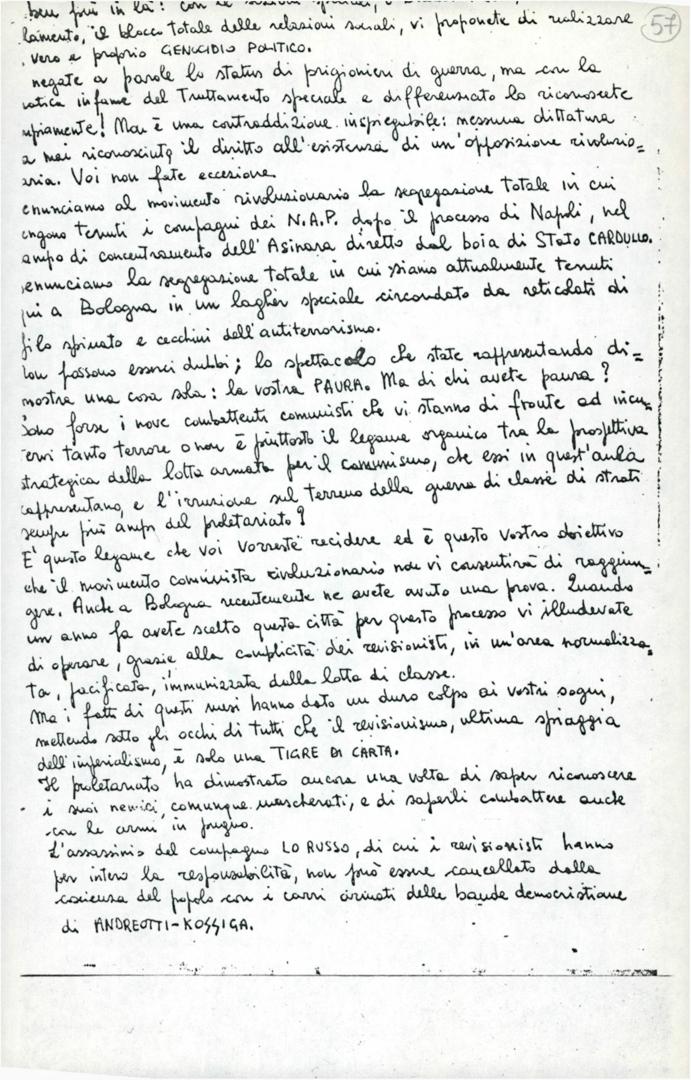 ben più in là: con le
lamento, il blocco totale delle relazioni sociali, vi proponete di realizzare
57
vero e proprio GENOCIDIO POLITICO.
negate a parole lo status di prigionieri di guerra, ma con la
ratica infame del Trattamento speciale e differenziato lo riconoscete
mpiamente! Non è una contraddizione inspiegabile: nessuna dittatura
a mai riconosciuto il diritto all'esistenza di un'opposizione rivoluzio=
aria. Voi non fate eccezione.
enunciamo al movimento rivoluzionario la segregazione totale in cui
engono tenuti i compagni dei N.A.P. dopo il processo di Napoli, nel
ampo di concentramento dell'Asinara diretto dal boia di Stato CARDULLO.
enunciamo la segregazione totale in cui siamo attualmente tenuti
qui a Bologna in un lagher speciale circondato da reticolati di
filo spinato e cecchini dell'antiterrorismo.
Non possono esserci dubbi; lo spettacolo che state rappresentando di=
mostra una cosa sola: la vostra PAURA. Ma di chi avete paura?
Sono forse i nove combattenti comunisti che vi stanno di fronte ad incu=
tervi tanto terrore o non è piuttosto il legame organico tra la prospettiva
strategica della lotta armata per il comunismo, che essi in quest'aula
rappresentano, e l'irruzione sul terreno della guerra di classe di strati
sempre più ampi del proletariato?
E' questo legame che voi vorreste recidere ed è questo vostro obiettivo
che il movimento comunista rivoluzionario non vi consentirà di raggiun=
gere. Anche a Bologna recentemente ne avete avuto una prova. Quando
un anno fa avete scelto questa città per questo processo vi illudevate
di operare, grazie alla complicità dei revisionisti, in un'area normalizza=
ta, pacificata, immunizzata dalla lotta di classe.
Ma i fatti di questi mesi hanno dato un duro colpo ai vostri sogni,
mettendo sotto gli occhi di tutti che il revisionismo, ultima spiaggia
dell'imperialismo, è solo una TIGRE DI CARTA.
Il proletariato ha dimostrato ancora una volta di saper riconoscere
i suoi nemici, comunque mascherati, e di saperli combattere anche
con le armi in pugno.
L'assassinio del compagno LO RUSSO, di cui i revisionisti hanno
per intero la responsabilità, non può essere cancellato dalla
coscienza del popolo con i carri armati delle bande democristiane
di ANDREOTTI-KOSSIGA.